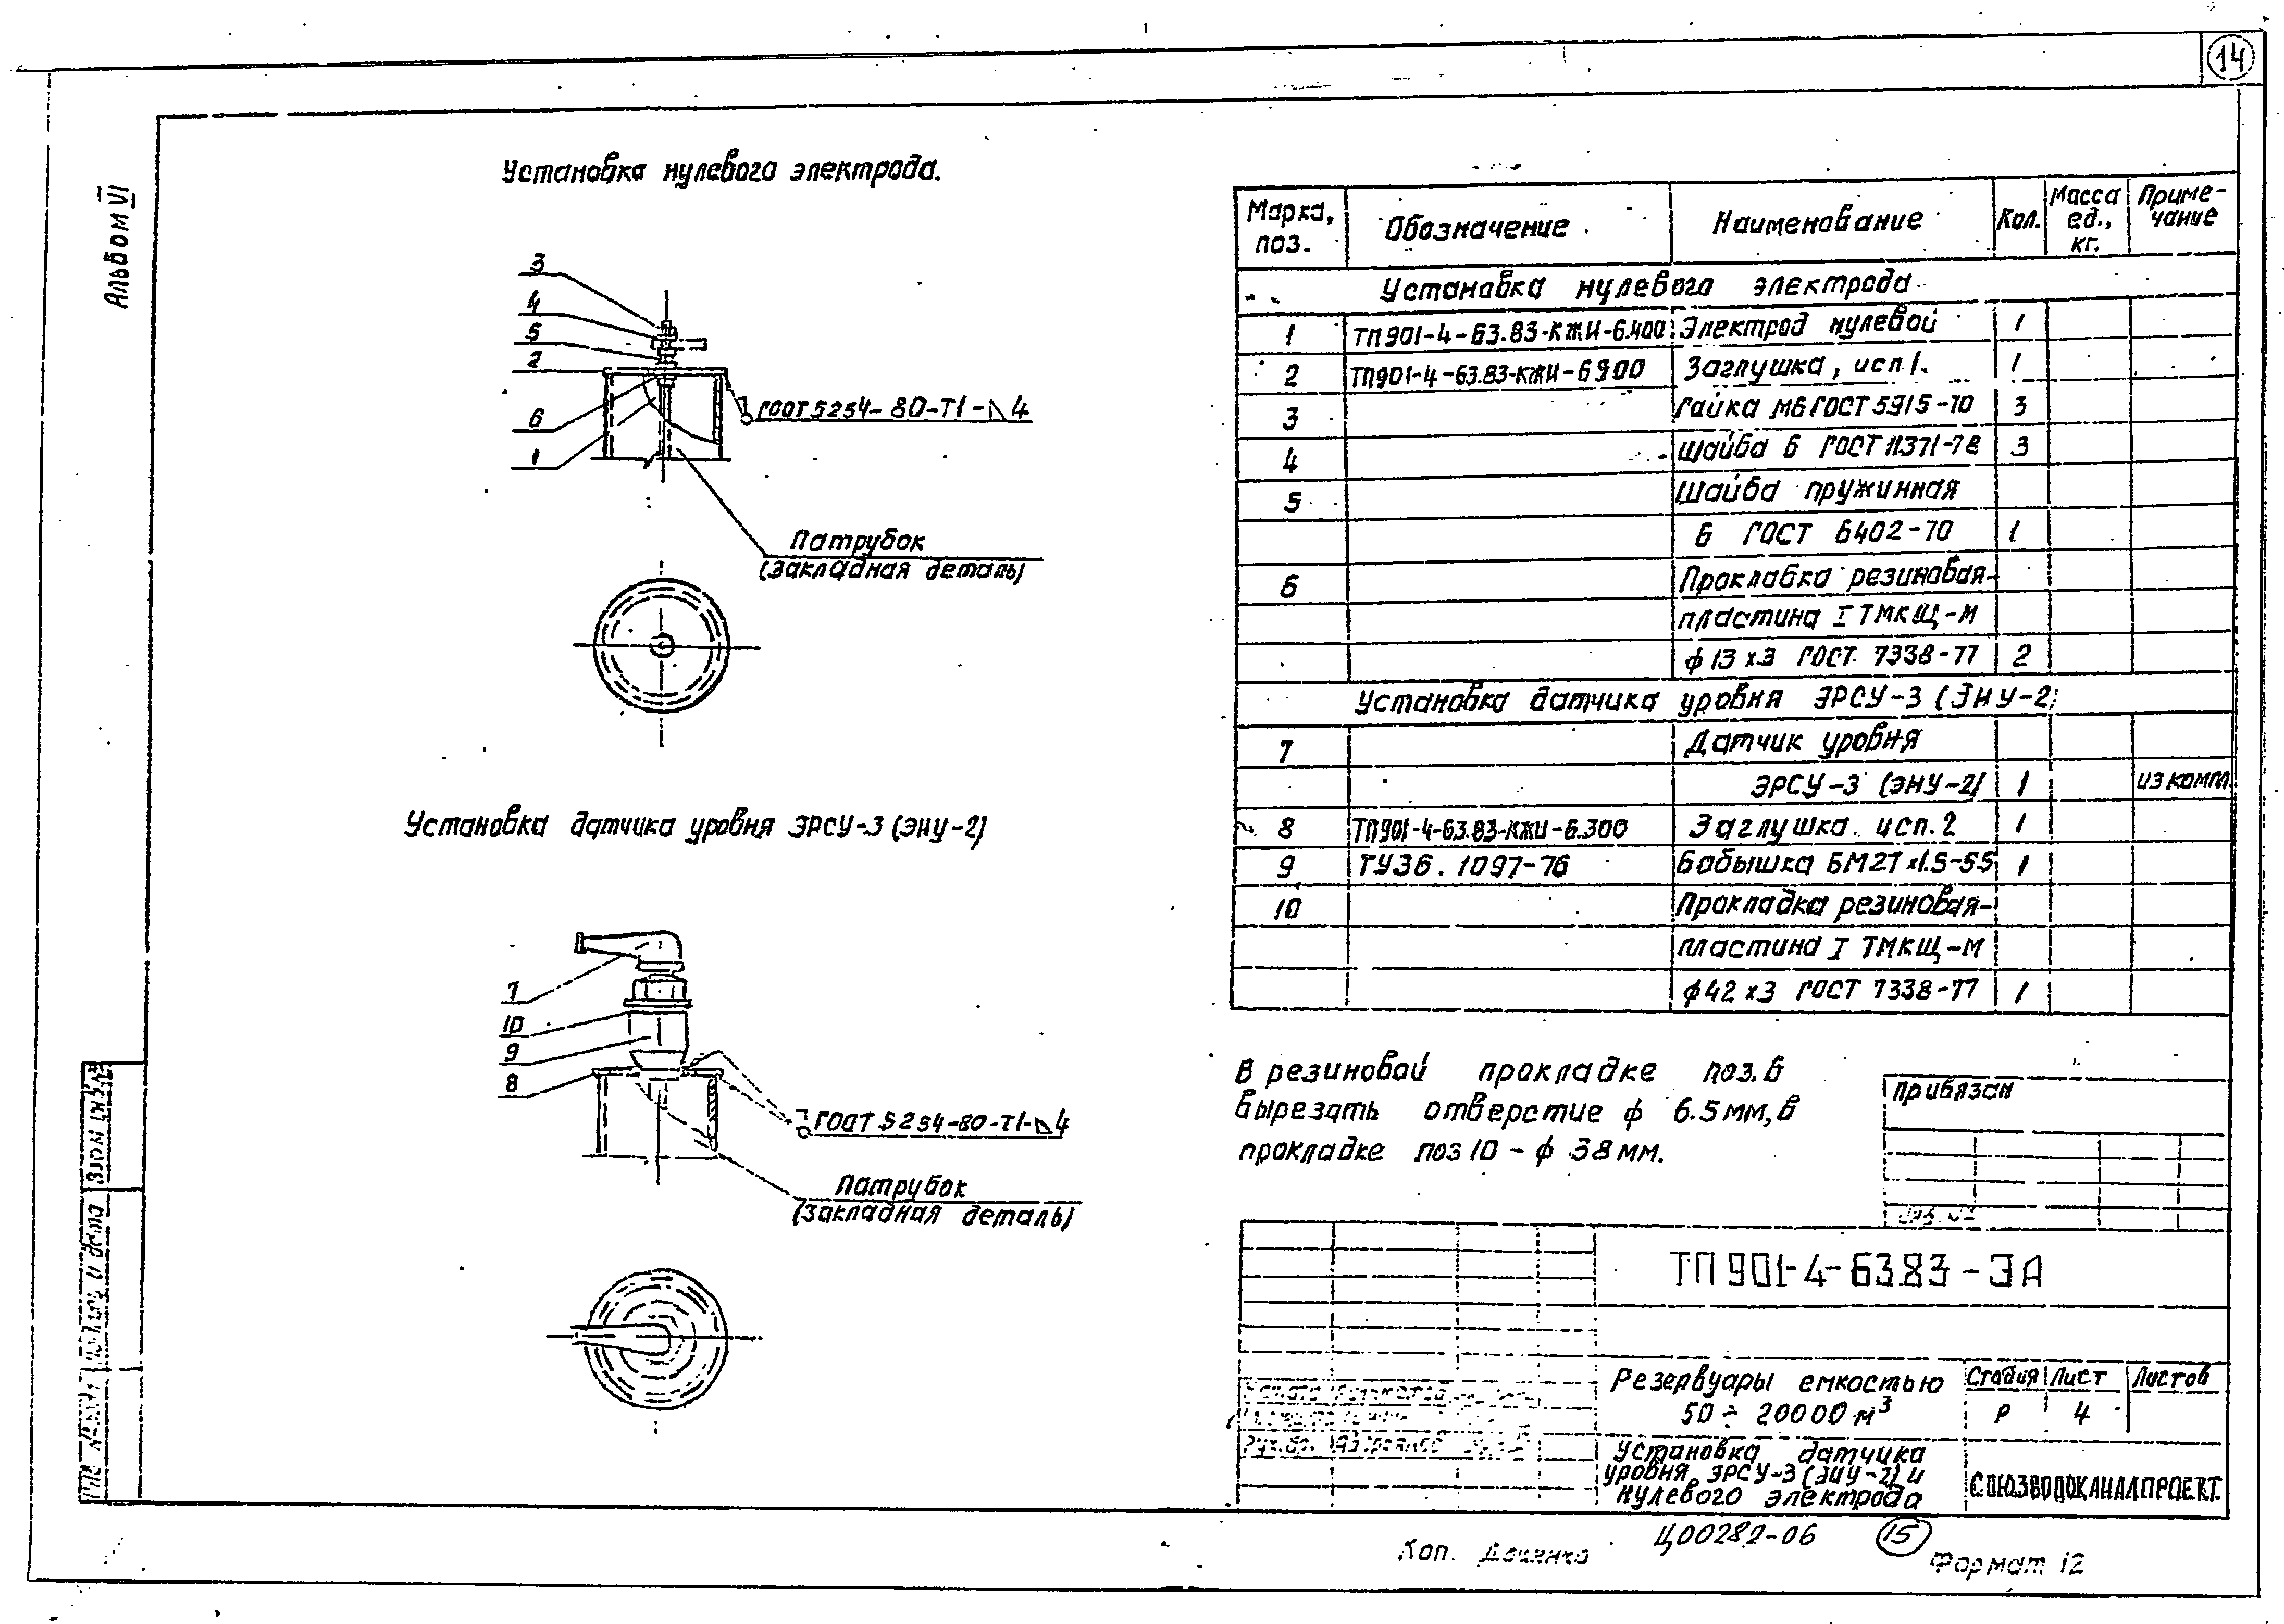 14
Альбом VI
Установка нулевого электрода.
3
4
5
2
6
1
ГОСТ 5254-80-Т1-◺4
Патрубок
(закладная деталь)
Установка датчика уровня ЭРСУ-3 (ЭНУ-2)
7
10
9
8
ГОСТ 5254-80-Т1-◺4
Патрубок
(закладная деталь)
Марка, поз. Обозначение Наименование Кол. Масса ед., кг. Приме-чание
Установка нулевого электрода
1 ТП901-4-63.83-КЖИ-6.400 Электрод нулевой 1
2 ТП901-4-63.83-КЖИ-6900 Заглушка, исп 1. 1
3 Гайка М6 ГОСТ 5915-70 3
4 Шайба 6 ГОСТ 11371-78 3
5 Шайба пружинная
6 ГОСТ 6402-70 1
6 Прокладка резиновая-
пластина I ТМКЩ-М
ф 13 х3 ГОСТ 7338-77 2
Установка датчика уровня ЭРСУ-3 (ЭНУ-2)
7 Датчик уровня
ЭРСУ-3 (ЭНУ-2) 1 из компл.
8 ТП901-4-63.83-КЖИ-6.300 Заглушка исп. 2 1
9 ТУ36.1097-76 Бобышка БМ27х1.5-55 1
10 Прокладка резиновая-
пластина I ТМКЩ-М
ф42 х3 ГОСТ 7338-77 1
В резиновой прокладке поз.6
вырезать отверстие ф 6.5мм, в
прокладке поз 10 - ф 38мм.
Привязан
Инв. №
ТП 901-4-63.83-ЭА
Резервуары емкостью
50 ÷ 20000 м³
Стадия Лист Листов
Р 4
Установка датчика
уровня ЭРСУ-3 (ЭНУ-2) и
нулевого электрода
СОЮЗВОДОКАНАЛПРОЕКТ
Взам инв №
Подпись и дата
Коп.
Ц00282-06
15
Формат 12